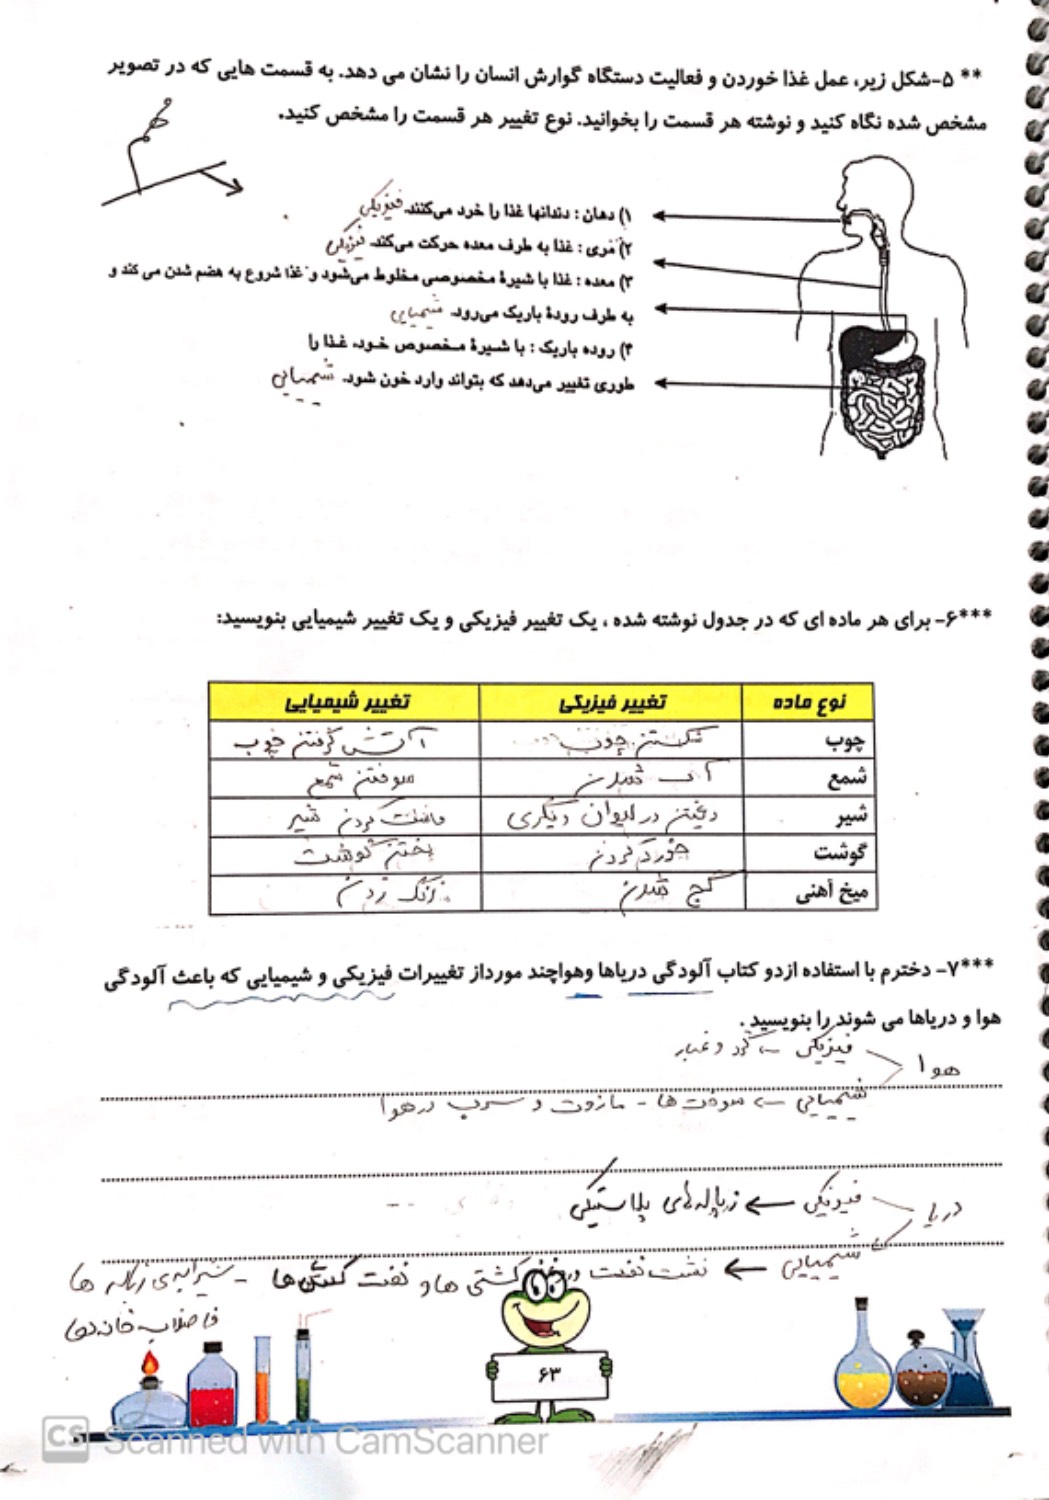 ** ۵-شکل زیر، عمل غذا خوردن و فعالیت دستگاه گوارش انسان را نشان می دهد. به قسمت هایی که در تصویر
مشخص شده نگاه کنید و نوشته هر قسمت را بخوانید. نوع تغییر هر قسمت را مشخص کنید.
مهم
۱) دهان : دندانها غذا را خرد می‌کنند. فیزیکی
۲) مری : غذا به طرف معده حرکت می‌کند. فیزیکی
۳) معده : غذا با شیرهٔ مخصوصی مخلوط می‌شود و غذا شروع به هضم شدن می کند و
به طرف رودهٔ باریک می‌رود. شیمیایی
۴) روده باریک : با شیرهٔ مخصوص خود، غذا را
طوری تغییر می‌دهد که بتواند وارد خون شود. شیمیایی
***۶- برای هر ماده ای که در جدول نوشته شده ، یک تغییر فیزیکی و یک تغییر شیمیایی بنویسید:
نوع ماده تغییر فیزیکی تغییر شیمیایی
چوب شکستن چوب آتش گرفتن چوب
شمع آب شدن سوختن شمع
شیر ریختن در لیوان دیگری ماست کردن شیر
گوشت خورد کردن پختن گوشت
میخ آهنی کج شدن زنگ زدن
***۷- دخترم با استفاده ازدو کتاب آلودگی دریاها وهواچند مورداز تغییرات فیزیکی و شیمیایی که باعث آلودگی
هوا و دریاها می شوند را بنویسید .
هوا فیزیکی ← گرد و غبار
شیمیایی ← سوخت ها - مازوت و سرب در هوا
دریا فیزیکی ← زباله‌های پلاستیکی
شیمیایی ← نشت نفت کشتی ها و نفت کش‌ها - شیرابه‌ی زباله ها
فاضلاب خانه‌ها
۶۳
CS Scanned with CamScanner